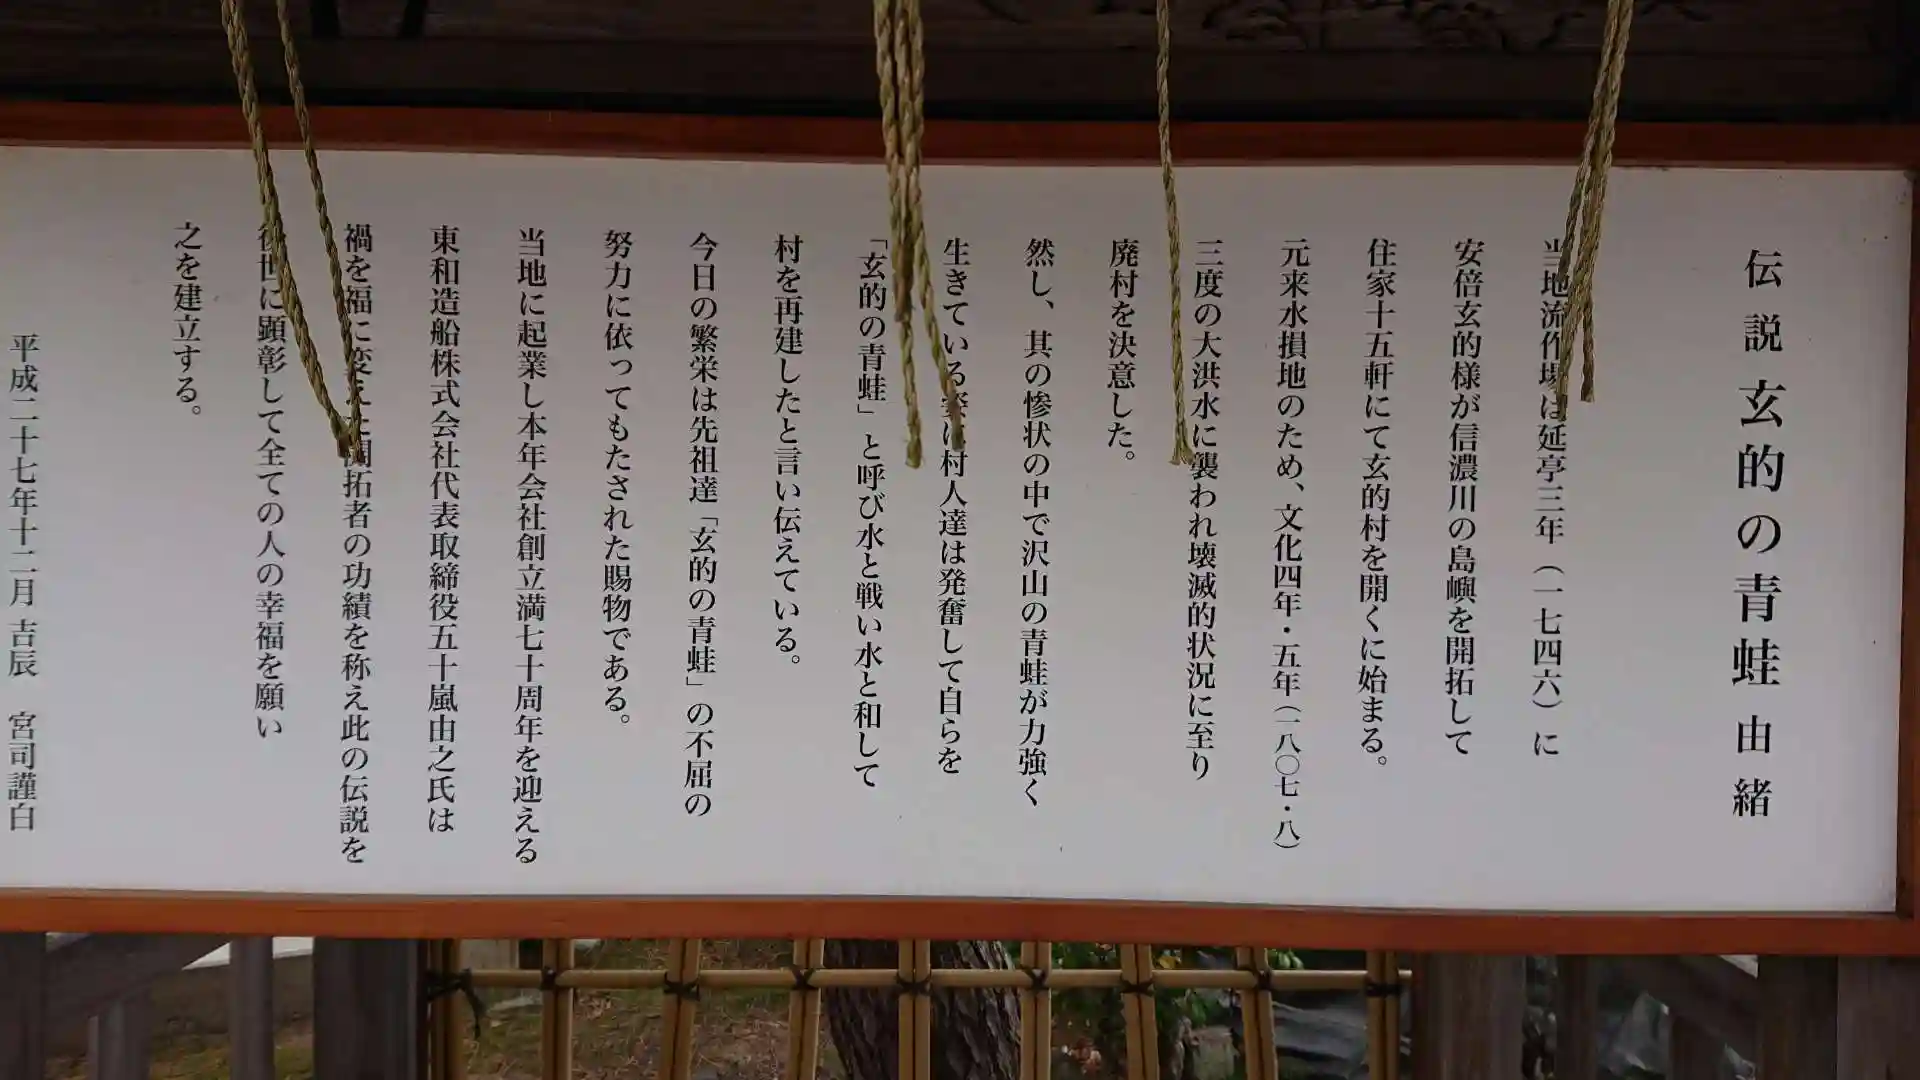 伝説 玄的の青蛙 由緒
当地流作場は延亭三年（一七四六）に
安倍玄的様が信濃川の島嶼を開拓して
住家十五軒にて玄的村を開くに始まる。
元来水損地のため、文化四年・五年（一八〇七・八）
三度の大洪水に襲われ壊滅的状況に至り
廃村を決意した。
然し、其の惨状の中で沢山の青蛙が力強く
生きている姿に村人達は発奮して自らを
「玄的の青蛙」と呼び水と戦い水と和して
村を再建したと言い伝えている。
今日の繁栄は先祖達「玄的の青蛙」の不屈の
努力に依ってもたされた賜物である。
当地に起業し本年会社創立満七十周年を迎える
東和造船株式会社代表取締役五十嵐由之氏は
禍を福に変えた開拓者の功績を称え此の伝説を
後世に顕彰して全ての人の幸福を願い
之を建立する。
平成二十七年十二月吉辰 宮司謹白